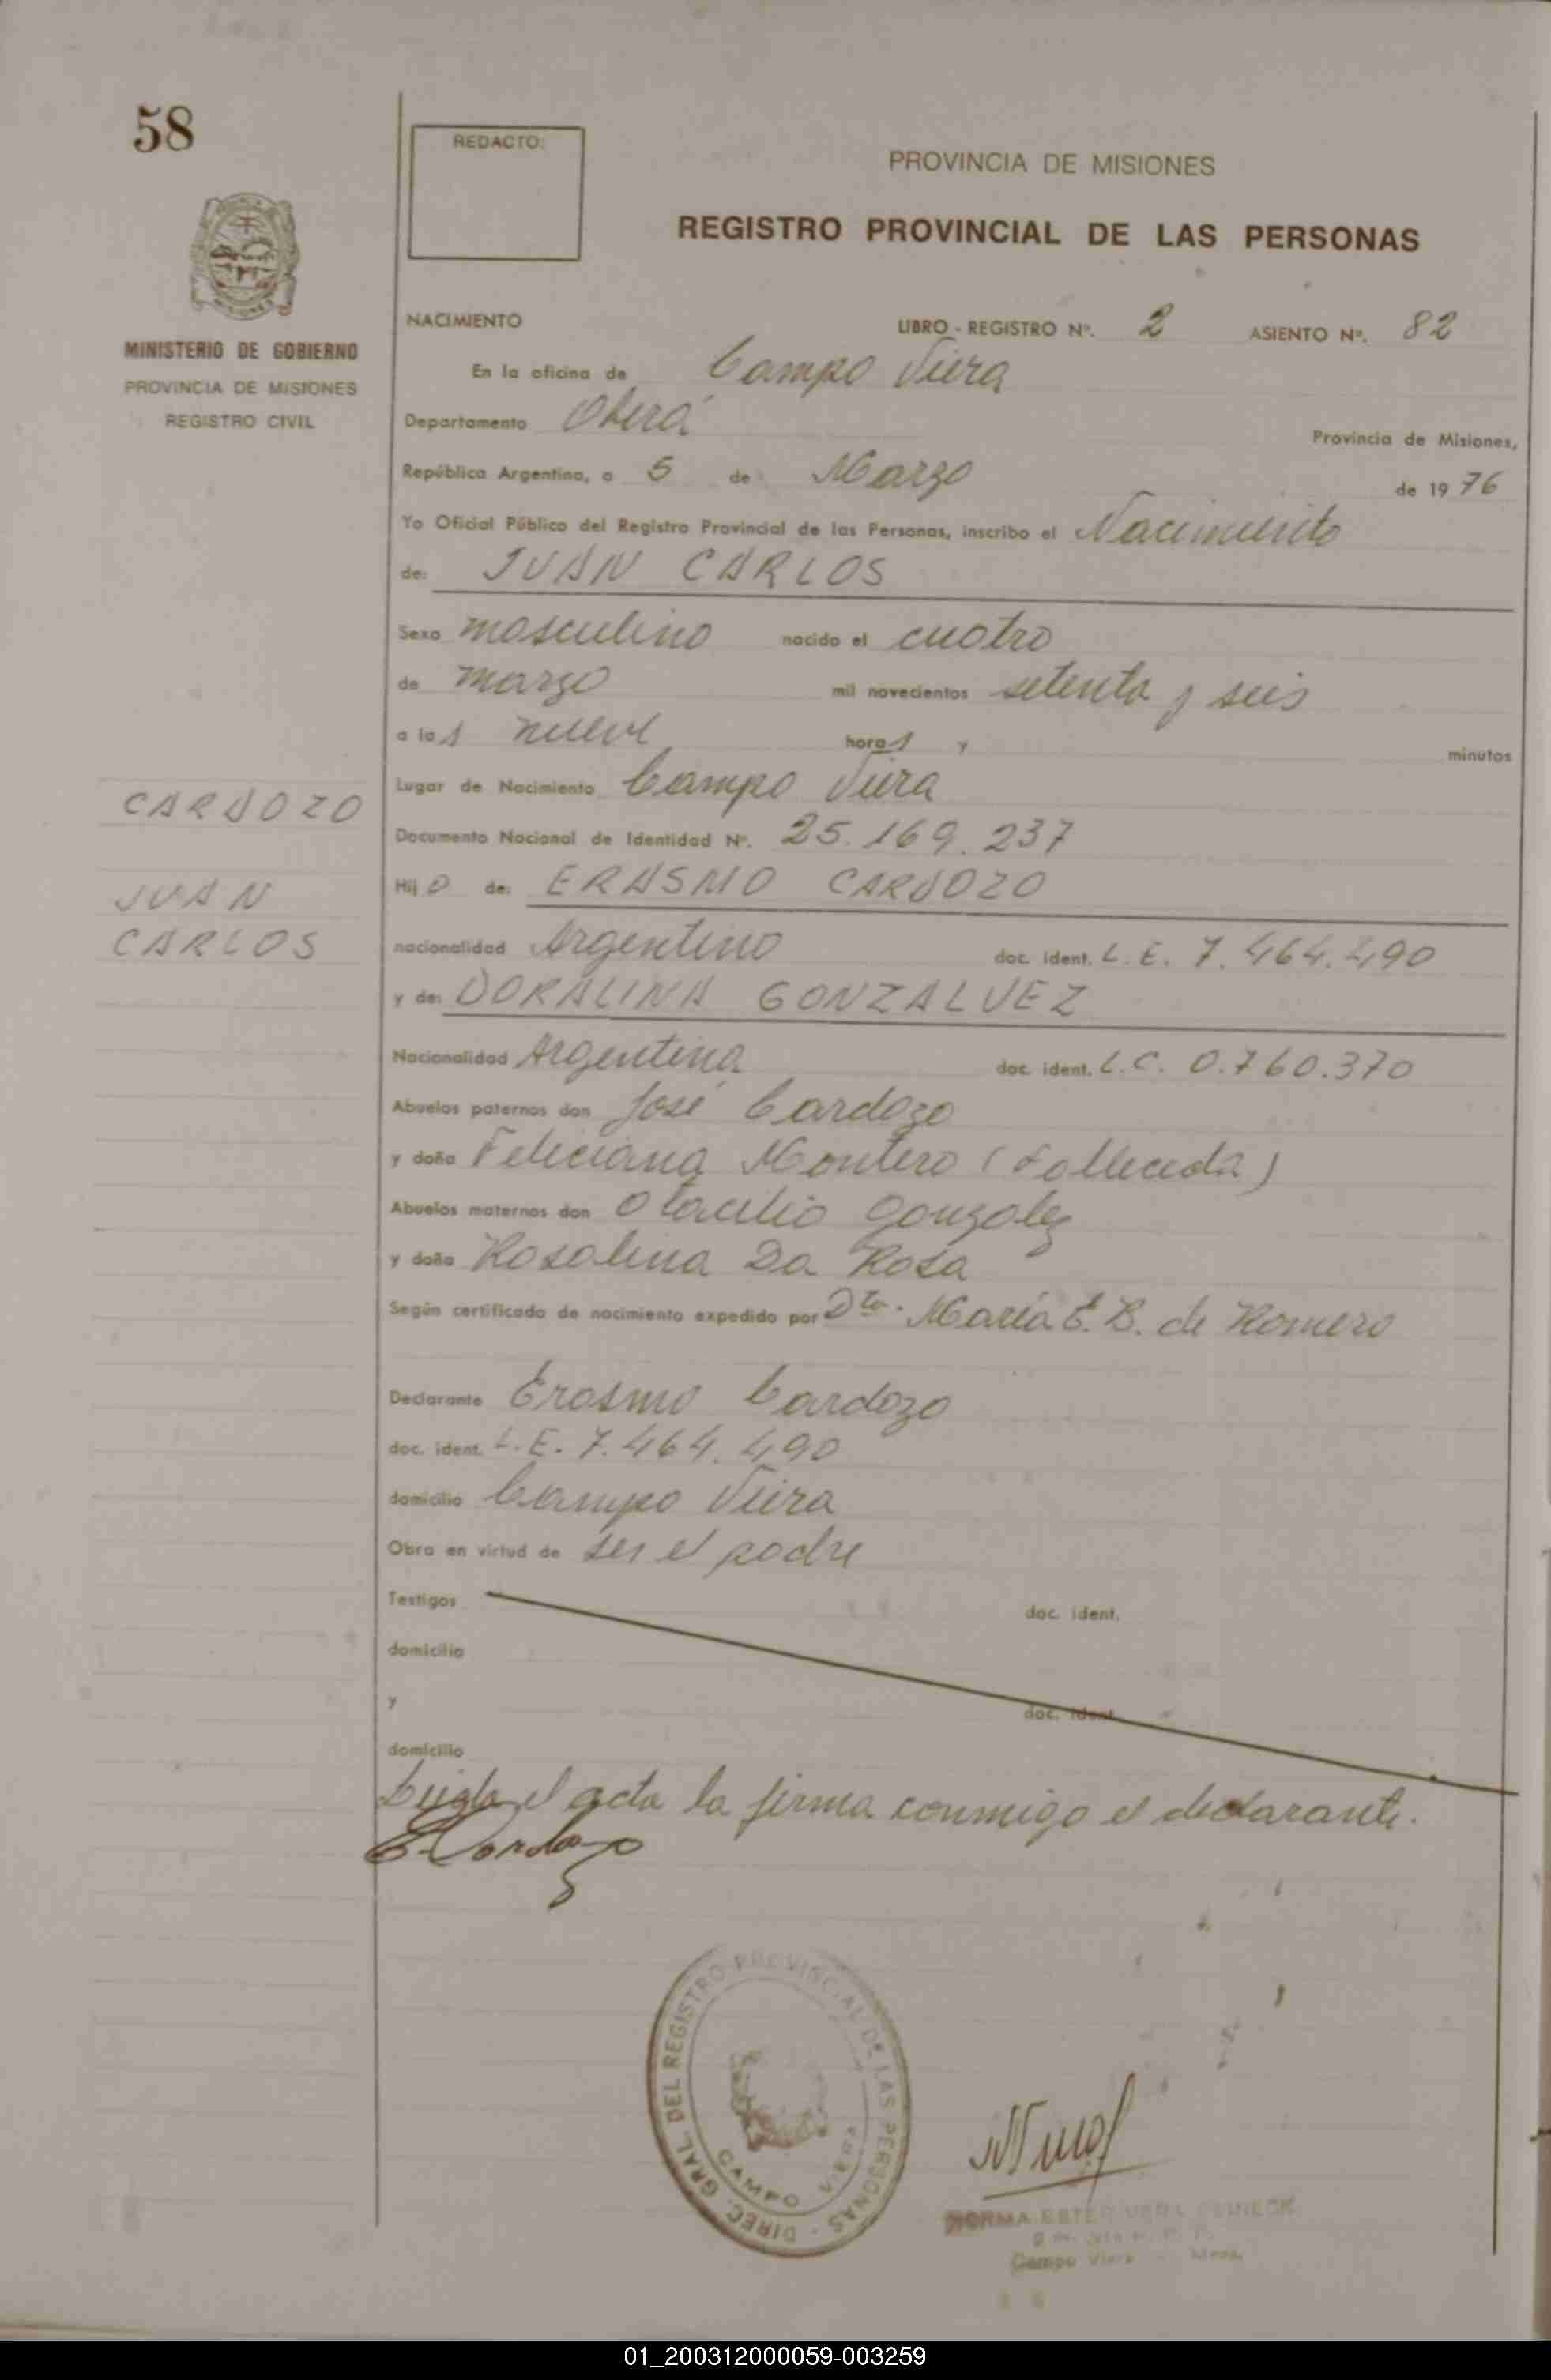 58
REDACTO:
PROVINCIA DE MISIONES
REGISTRO PROVINCIAL DE LAS PERSONAS
MINISTERIO DE GOBIERNO
PROVINCIA DE MISIONES
REGISTRO CIVIL
NACIMIENTO LIBRO - REGISTRO Nº. 2 ASIENTO Nº. 82
En la oficina de Campo Viera
Departamento Oberá Provincia de Misiones,
República Argentina, a 5 de Marzo de 1976
Yo Oficial Público del Registro Provincial de las Personas, inscribo el Nacimiento
de: JUAN CARLOS
Sexo masculino nacido el cuatro
de marzo mil novecientos setenta y seis
a las nueve horas y minutos
Lugar de Nacimiento Campo Viera
CARDOZO
Documento Nacional de Identidad Nº. 25.169.237
JUAN
CARLOS
Hijo de: ERASMO CARDOZO
nacionalidad Argentino doc. ident. L.E. 7.464.490
y de: DORALINA GONZALVEZ
Nacionalidad Argentina doc. ident. L.C. 0.760.370
Abuelos paternos don José Cardozo
y doña Feliciana Montero (Fallecida)
Abuelos maternos don Otacilio Gonzalez
y doña Rosalina Da Rosa
Según certificado de nacimiento expedido por Dra. María E. B. de Romero
Declarante Erasmo Cardozo
doc. ident. L.E. 7.464.490
domicilio Campo Viera
Obra en virtud de ser el padre
Testigos doc. ident.
domicilio
y doc. ident.
domicilio
el acta la firma conmigo el declarante.
E Cardozo
DIREC. GRAL. DEL REGISTRO PROVINCIAL DE LAS PERSONAS
CAMPO VIERA
NORMA ESTER
Campo Viera
01_200312000059-003259